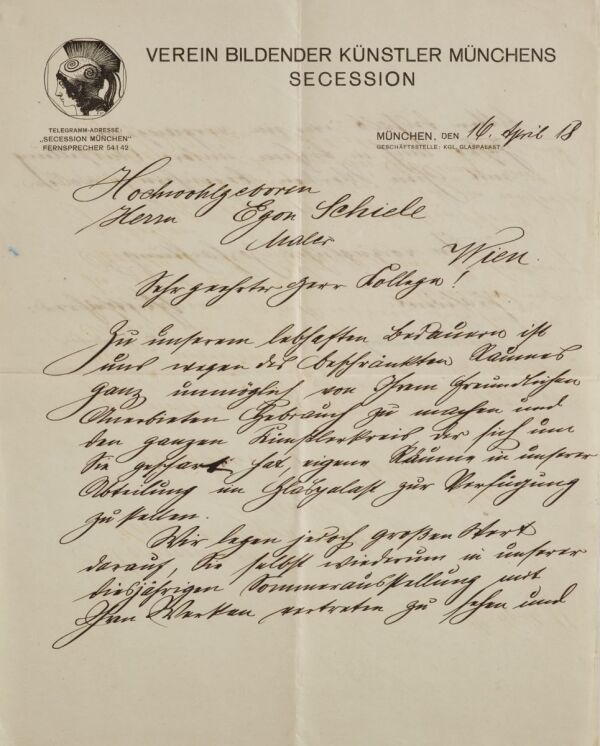 VEREIN BILDENDER KÜNSTLER MÜNCHENS
SECESSION
TELEGRAMM-ADRESSE:
„SECESSION MÜNCHEN"
FERNSPRECHER 54142
MÜNCHEN, DEN 16. April 18
GESCHÄFTSSTELLE: KGL. GLASPALAST
Hochwohlgeboren
Herrn Egon Schiele
Maler
Wien.
Sehr geehrter Herr Kollege!
Zu unserem lebhaften Bedauern ist
uns wegen des beschränkten Raumes
ganz unmöglich von Ihrem freundlichen
Anerbieten Gebrauch zu machen und
den ganzen Künstlerkreis der sich um
Sie geschart hat, eigene Räume in unserer
Abteilung im Glaspalast zur Verfügung
zu stellen.
Wir legen jedoch großen Wert
darauf, Sie selbst wiederum in unserer
diesjährigen Sommerausstellung mit
Ihren Werken vertreten zu sehen und